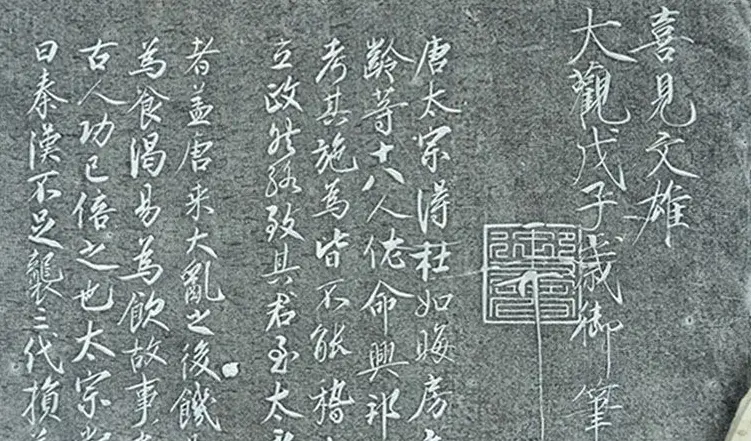 喜見文雄
大觀戊子歲御筆
唐太宗得杜如晦房
齡等十八人佐命興邦
考其施為皆不能稽
立政然能致其君至太
者蓋唐來大亂之後饑
為食渴易為飲故事
古人功已倍之也太宗
曰秦漢不足襲三代損